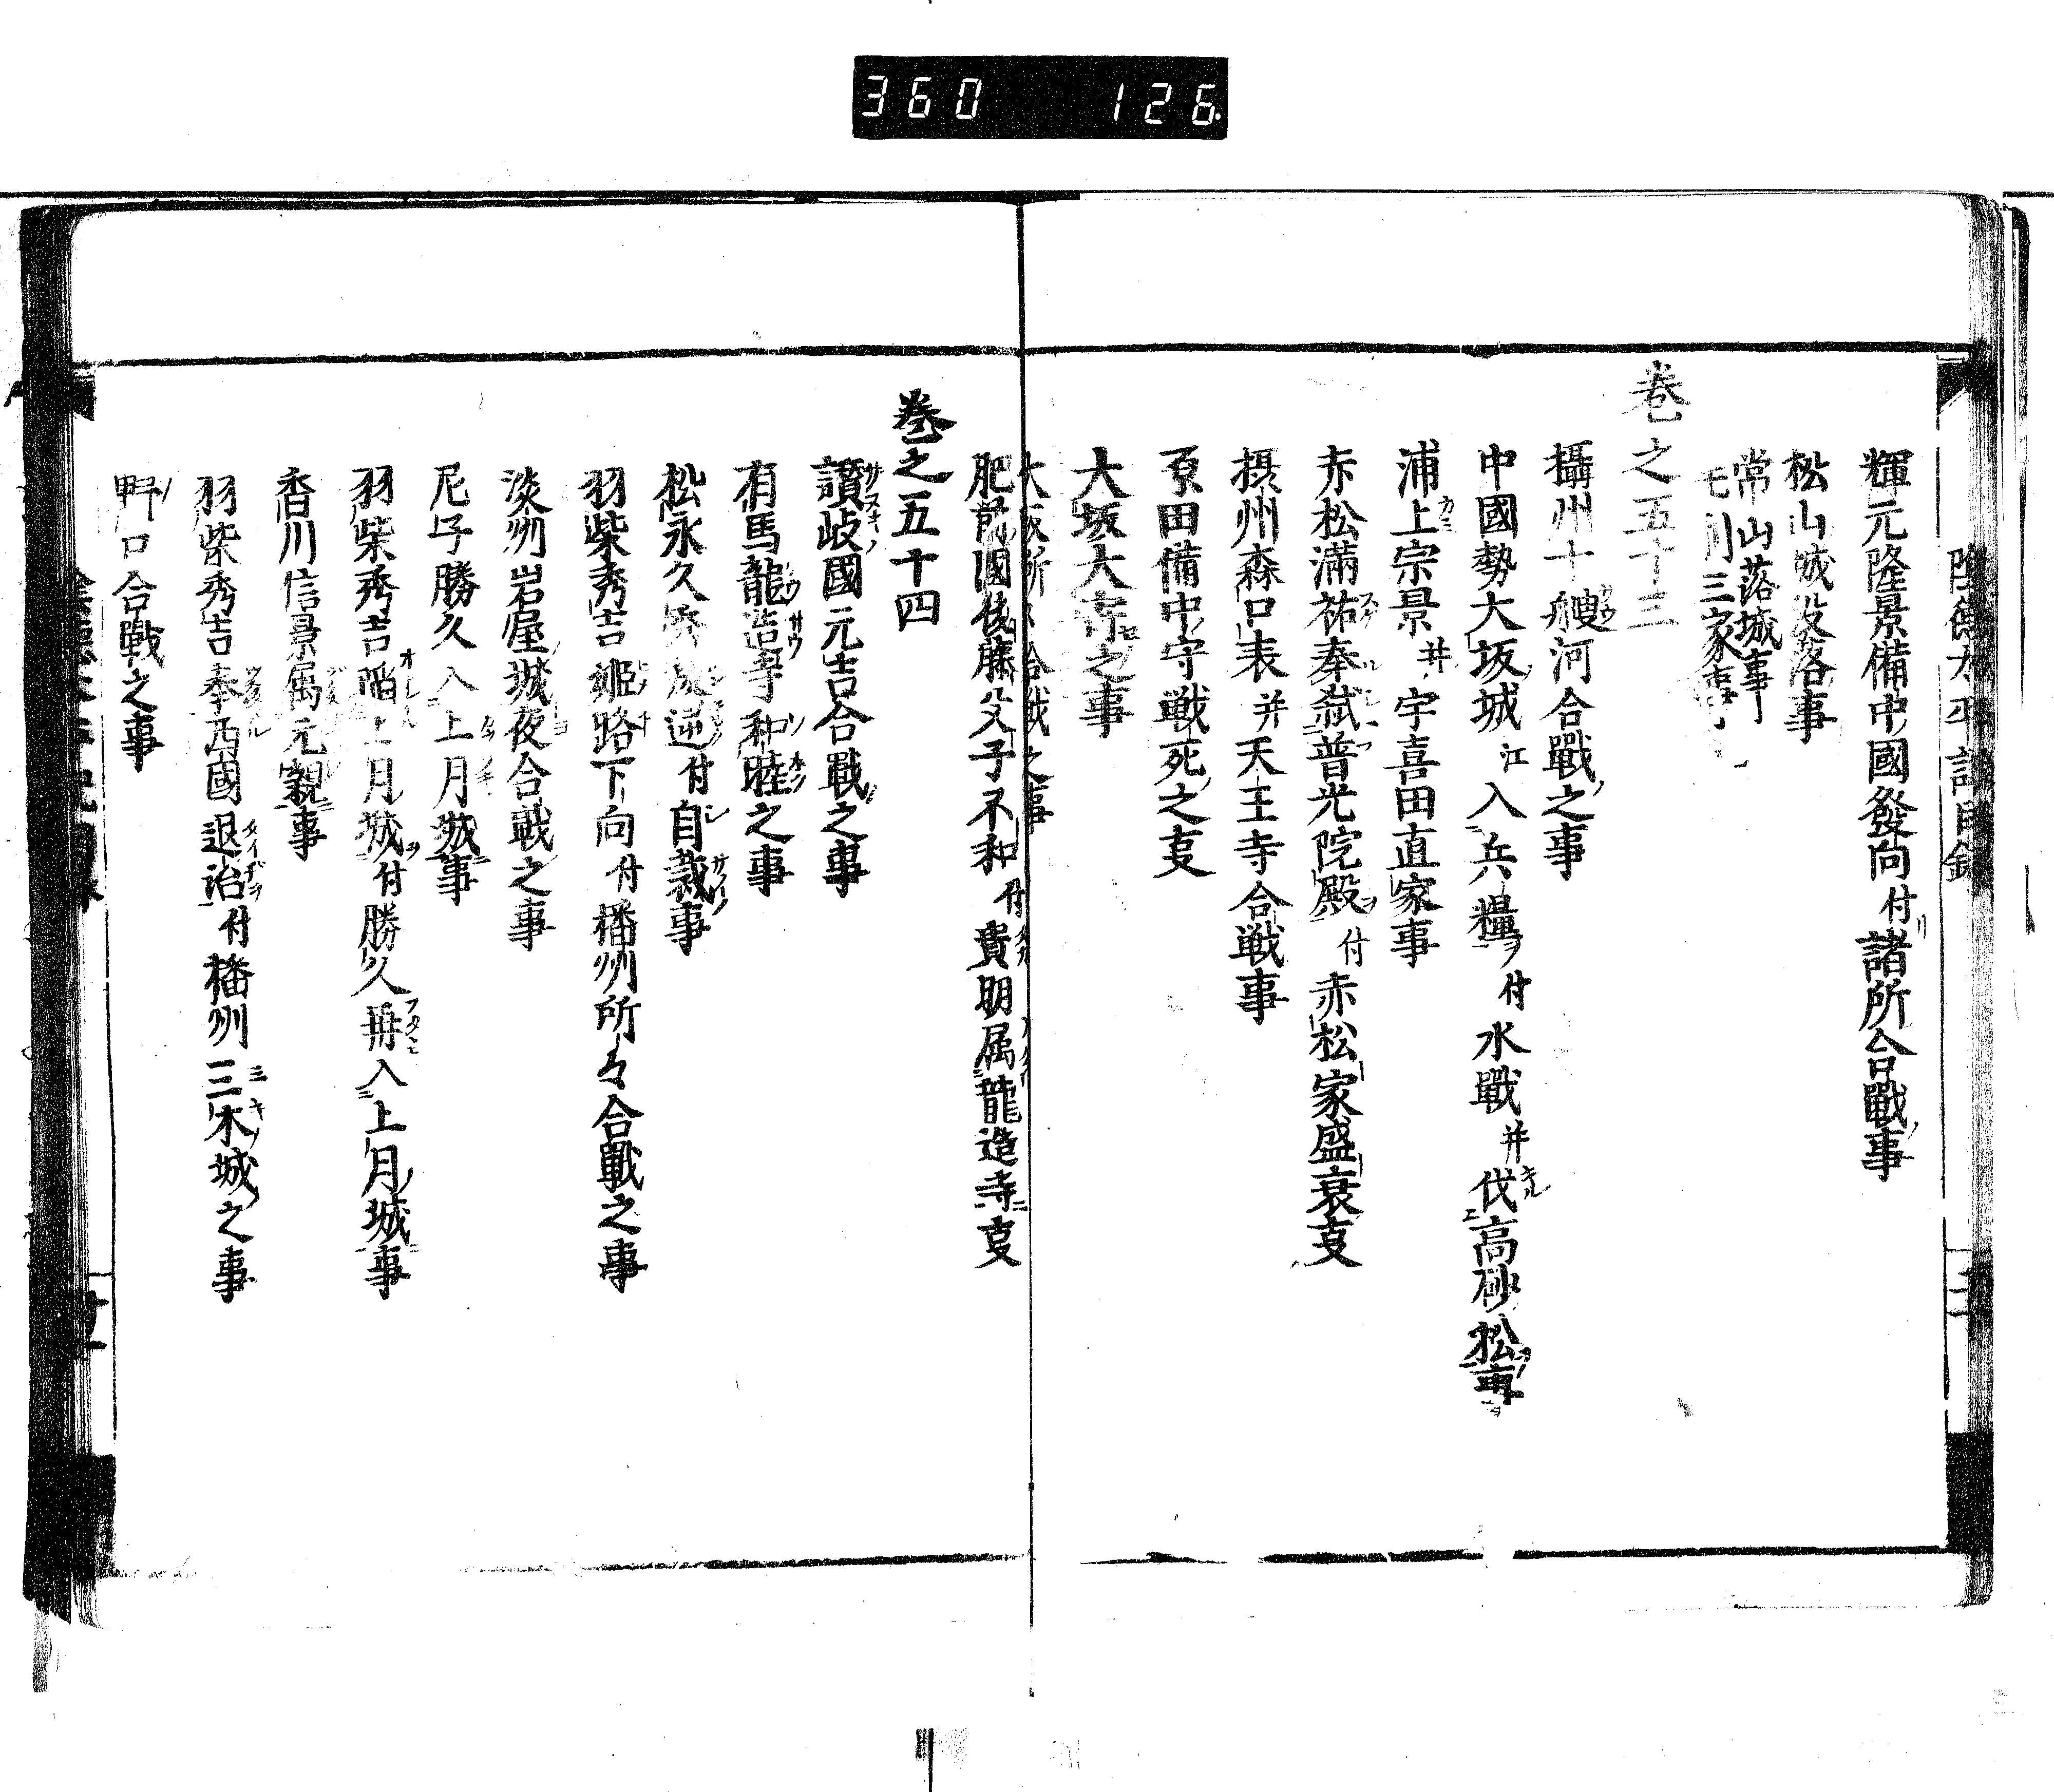 360 126
輝元隆景備中國發向付諸所合戰事
松山城没落事
常山落城事
三家事
巻之五十三
攝州十艘河合戰之事
中國勢大坂城江入兵糧ヲ付水戰并伐高砂松事
浦上宗景并宇喜田直家事
赤松満祐奉弑普光院殿付赤松家盛衰叓
摂州森口表并天王寺合戦事
原田備中守戦死之叓
大坂大寄之事
大坂所々合戦之事
肥前國後藤父子不和付貴明属龍造寺叓
巻之五十四
讃岐國元吉合戰之事
有馬龍造寺和睦之事
松永久秀叛逆付自裁事
羽柴秀吉姫路下向付播州所々合戰之事
淡州岩屋城夜合戰之事
尼子勝久入上月城事
羽柴秀吉陷上月城付勝久再入上月城事
香川信景属元親事
羽柴秀吉奉西國退治付播州三木城之事
口合戰之事